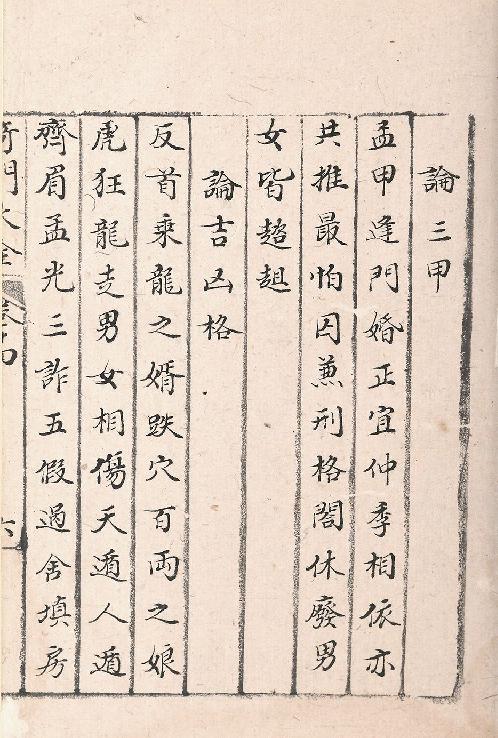 論三甲
孟甲逢門婚正宜仲季相依亦
共推最怕囚兼刑格閤休廢男
女皆趑趄
論吉凶格
反首乘龍之婿跌穴百兩之娘
虎狂龍走男女相傷天遁人遁
齊眉孟光三詐五假過舍填房
奇門大全